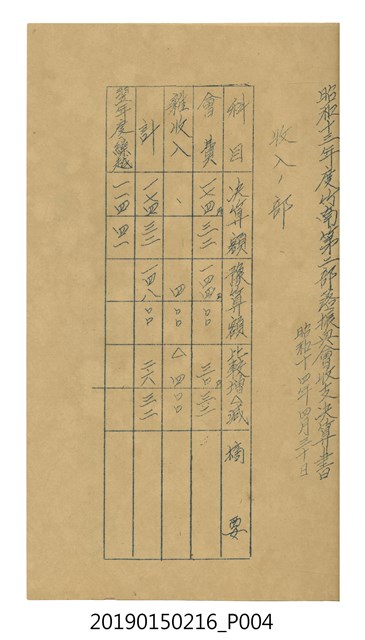 昭和十三年度竹南第二部落振興會收支決算書
昭和十四年四月三十日
收入ノ部
科目 決算額 豫算額 比較增△減 摘要
會費 一七四 三二 一四四 〇〇 三〇 三二
雜收入 、 四 〇〇 △ 四 〇〇
計 一七四 三二 一四八 〇〇 二六 三二
翌年度繰越 一一四 四一
20190150216_P004